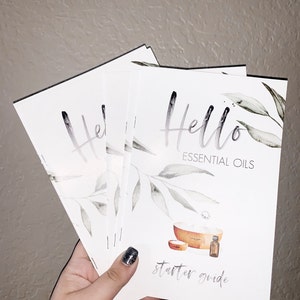 Hello
ESSENTIAL OILS
starter guide
Hel